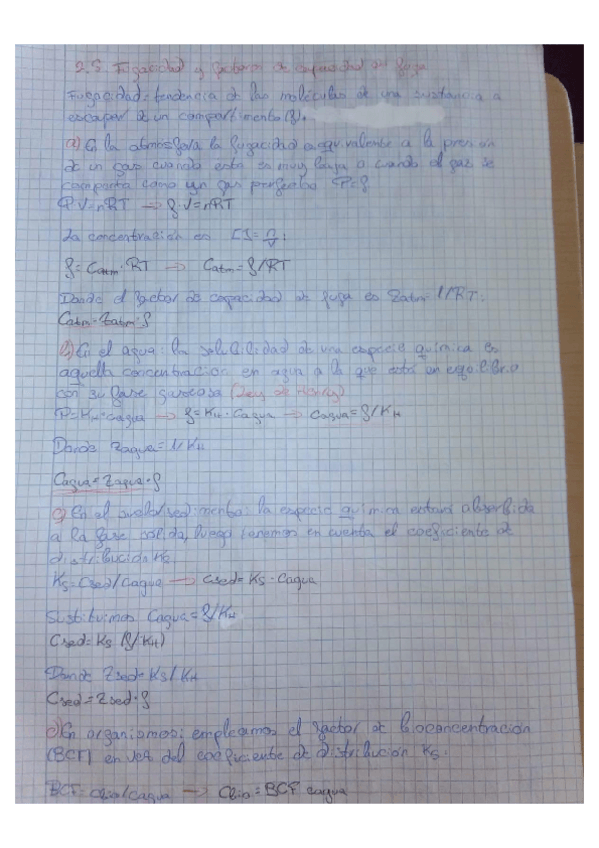 2.5. Fugacidad y factores de capacidad de fuga
Fugacidad = tendencia de las moléculas de una sustancia a
escapar de un compartimento (f).
a) En la atmósfera la fugacidad equivalente a la presión
de un gas cuando esta es muy baja o cuando el gas se
comporta como un gas perfecto P=f
P·V=nRT → f·V=nRT
La concentración es [ ]=n/V:
f=Catm·RT → Catm=f/RT
Donde el factor de capacidad de fuga es Zatm=1/RT.
Catm=Zatm·f
b) En el agua: la solubilidad de una especie química es
aquella concentración en agua a la que está en equilibrio
con su fase gaseosa (Ley de Henry)
P=KH·cagua → f=KH·Cagua → Cagua=f/KH
Donde Zagua=1/KH
Cagua=Zagua·f
c) En el suelo/sedimento: la especie química estará absorbida
a la fase sólida, luego tenemos en cuenta el coeficiente de
distribución Ks.
Ks=Csed/Cagua → Csed=Ks·Cagua
Sustituimos Cagua=f/KH
Csed=Ks (f/KH)
Donde Zsed=Ks/KH
Csed=Zsed·f
d) En organismos: empleamos el factor de bioconcentración
(BCF) en vez del coeficiente de distribución Ks.
BCF=Cbio/cagua → Cbio=BCF cagua